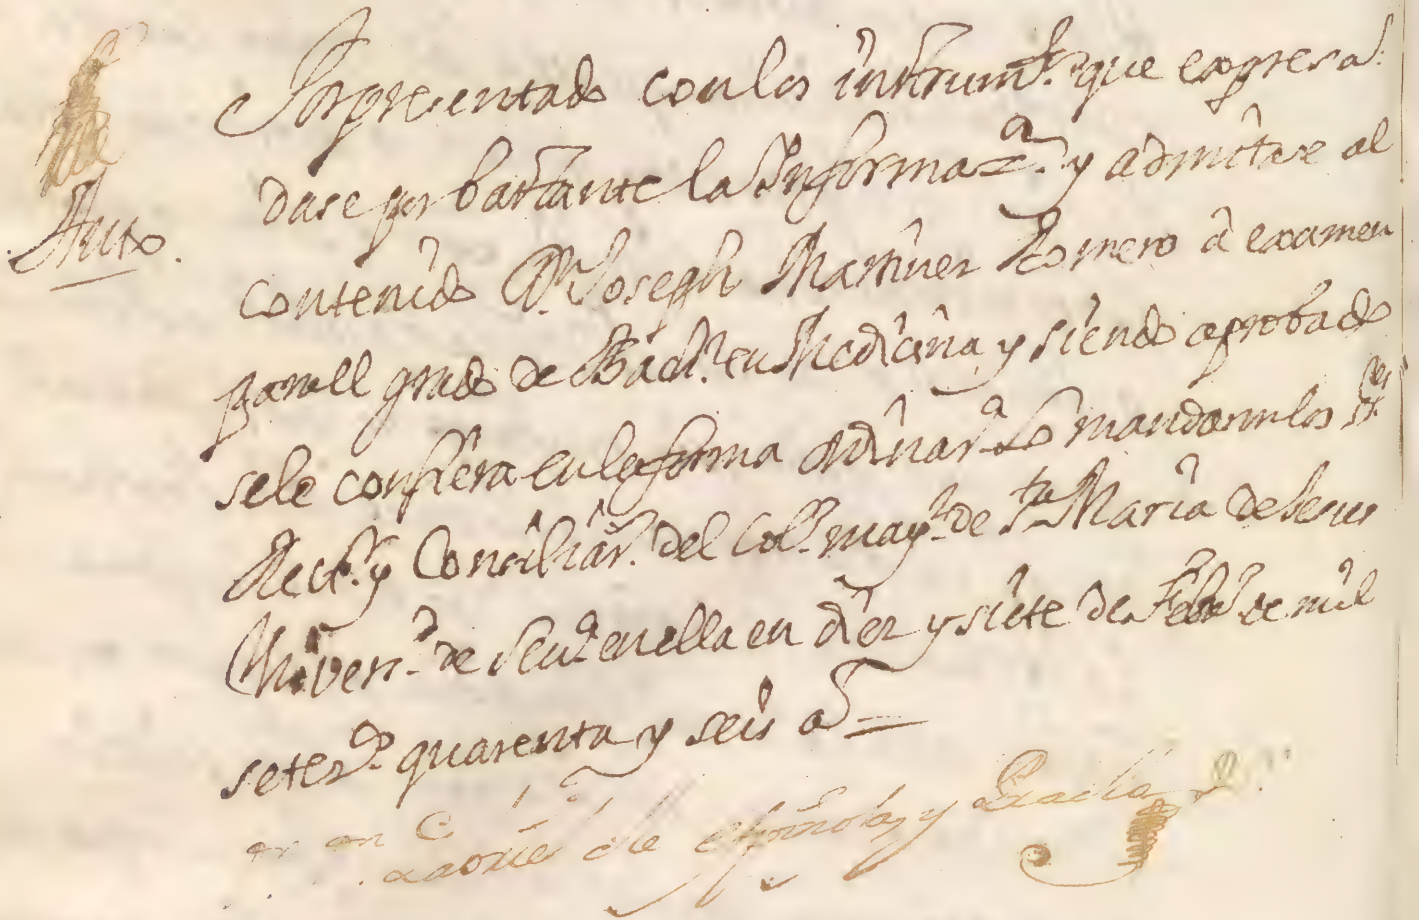 Auto.
Por presentado con los instrumtos. que expresa.
dase por bastante la Informazon. y admitase al
contenido Dn. Joseph Martinez Romero â examen
para ell grado de Bachr. en Medicina, y siendo aprobado
sele confiera en la forma ordinara. Lo mandaron los SSres
Rectr. y Conciliars. del Colo. mayr. de Sta. Maria de Jesus
Univerd. de Seva. en ella en diez y siete de Febro de mil
setezs. quarenta y seis as
de española y